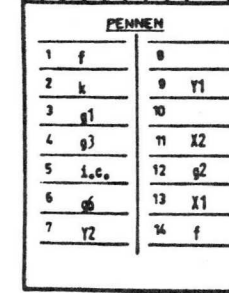 PENNEN
1 f 8
2 k 9 Y1
3 g1 10
4 g3 11 X2
5 i.c. 12 g2
6 g6 13 X1
7 Y2 14 f